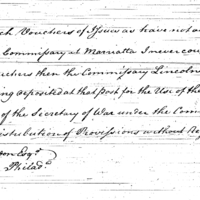 ch Vouchers of Issues as have not a
Commissary at Marietta I never cou
uchers then the Commissary Lincoln
ing deposited at that post for the Use of the
of the Secretary of War under the Com
istribution of Provisions without Re
ton Esqr
Philada.